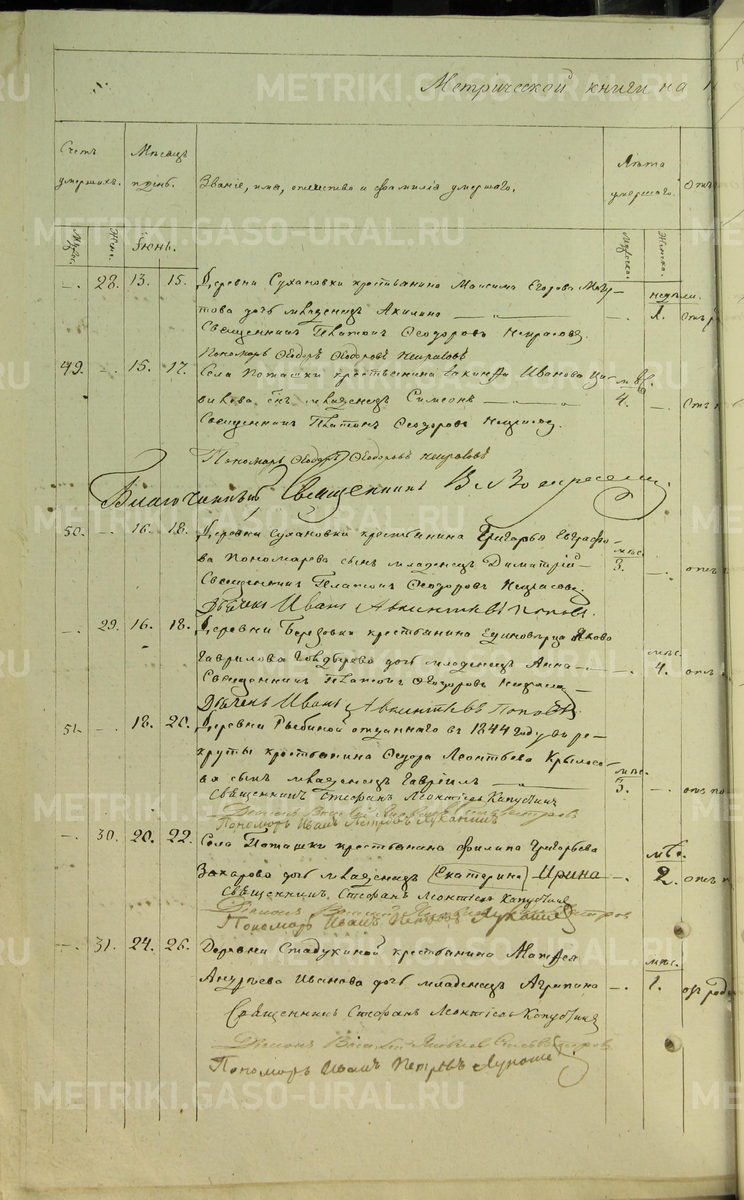 Метрической книги на
Счетъ умершихъ.
Мѣсяцъ и день.
Званіе, имя, отчество и фамилія умершаго.
Лѣта умершаго.
Муж.
Жен.
Іюнь.
Мужеска.
Женска.
—. 28. 13. 15. Деревни Сухановки крестьянина Максима Егорова
това дочь младенецъ Акилина —. недѣли. 1.
Священникъ Платонъ Ѳеодоровъ Некрасовъ
Пономарь Ѳеодоръ Ѳеодоровъ Некрасовъ
49. —. 15. 17. Села Поташки крестьянина Іакинѳа Иванова
сынъ младенецъ Симеонъ — мѣс. 4. —.
Священникъ Платонъ Ѳеодоровъ Некрасовъ
Пономарь Ѳеодоръ Ѳеодоровъ Некрасовъ
Благочинный Священникъ
50. —. 16. 18. Деревни Сухановки крестьянина Григорья Евграфо-
ва Пономарева сынъ младенецъ Димитрій — мѣс. 3. —.
Священникъ Платонъ Ѳеодоровъ Некрасовъ
Дьячекъ Иванъ Авкинтьевъ Поповъ.
—. 29. 16. 18. Деревни Березовки крестьянина Единоверца Якова
Гаврилова дочь младенецъ Анна —. мѣс. 4.
Священникъ Платонъ Ѳеодоровъ Некрасовъ
Дьячекъ Иванъ Авкинтьевъ Поповъ
51. —. 18. 20. Деревни Рыбиной отданнаго въ 1844 году въ ре-
круты крестьянина Ѳедора Леонтьева Крылосо-
ва сынъ младенецъ Гавріилъ — мѣс. 3. —.
Священникъ Стефанъ Леонтьевъ Капустинъ
Пономарь Иванъ Петровъ Луканинъ
—. 30. 20. 22. Села Поташки крестьянина Филипа Григорьева
Захарова дочь младенецъ (Екатерина) Ирина —. мѣс. 2.
Священникъ Стефанъ Леонтьевъ Капустинъ
Пономарь Иванъ Петровъ
—. 31. 24. 26. Деревни Стадухиной крестьянина Матфея
Андреева Иванова дочь младенецъ Агрипина —. мѣс. 1.
Священникъ Стефанъ Леонтьевъ Капустинъ
Пономарь Иванъ Петровъ
METRIKI.GASO-URAL.RU